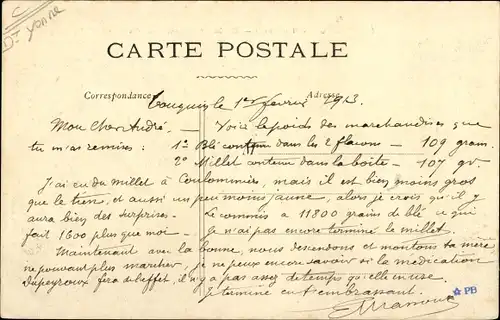 Dt Yonne
CARTE POSTALE
Correspondance
Adresse
Touquin le 1er février 1913.
Mon cher André. — Voici le poids des marchandises que
tu m'as remises : 1° Blé contenu dans les 2 flacons — 109 gram.
2° Millet contenu dans la boîte — 107 gr.
J'ai eu du millet à Coulommiers, mais il est bien moins gros
que le tien, et aussi un peu moins jaune, alors je crois qu'il y
aura bien des surprises. — Le commis a 11800 grains de blé, ce qui
fait 1600 plus que moi — Je n'ai pas encore terminé le millet.
Maintenant avec la bonne, nous descendons et montons ta mère
ne pouvant plus marcher, je ne peux encore savoir si la médication
Dupeyroux fera de l'effet, il n'y a pas assez de temps qu'elle en use.
Je termine en t'embrassant.
PB